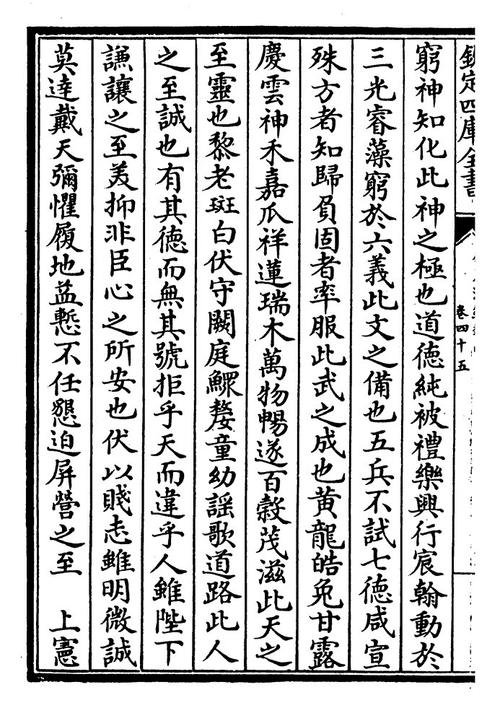 欽定四庫全書
卷四十五
窮神知化此神之極也道德純被禮樂興行宸翰動於
三光睿藻窮於六義此文之備也五兵不試七德咸宣
殊方者知歸負固者率服此武之成也黄龍皓兔甘露
慶雲神禾嘉瓜祥蓮瑞木萬物暢遂百榖茂滋此天之
至靈也黎老斑白伏守闕庭鰥嫠童幼謡歌道路此人
之至誠也有其德而無其號拒乎天而違乎人雖陛下
謙讓之至美抑非臣心之所安也伏以賤志雖明微誠
莫達戴天彌懼履地益慙不任懇迫屏營之至　上憲